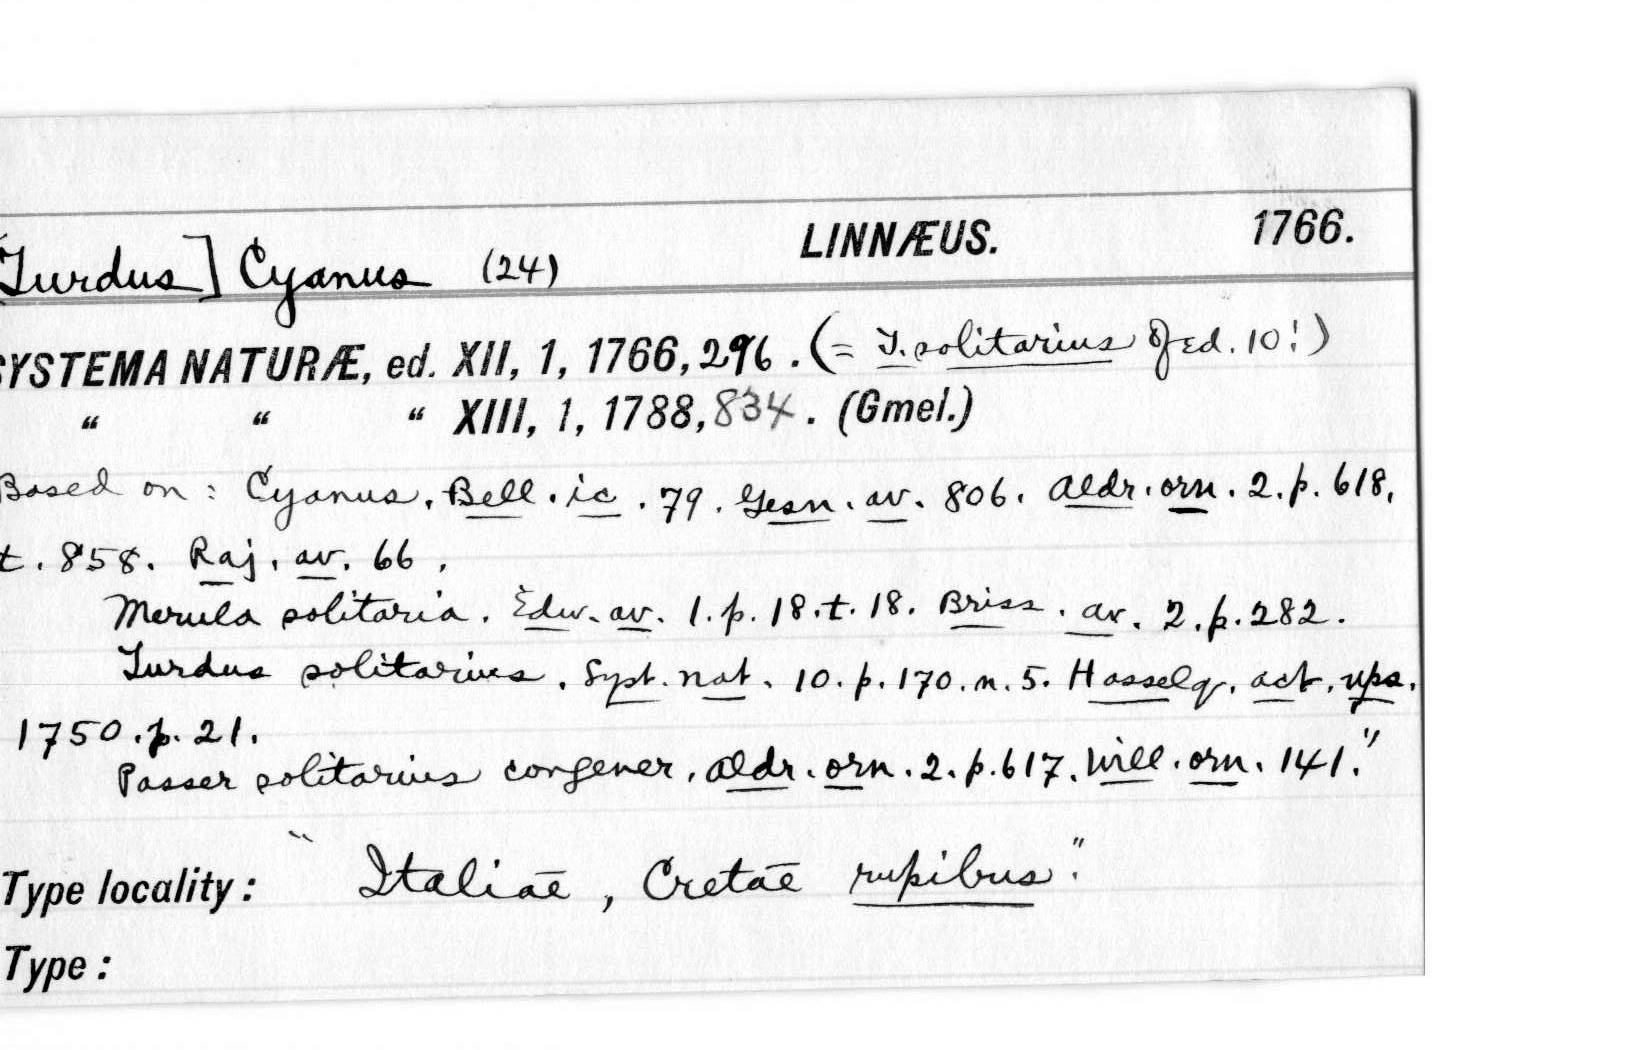 [Turdus] Cyanus (24) LINNÆUS. 1766.
SYSTEMA NATURÆ, ed. XII, 1, 1766, 296. (= T. solitarius of ed. 10!)
“ “ “ XIII, 1, 1788, 834. (Gmel.)
Based on: Cyanus. Bell. ic. 79. Gesn. av. 806. Aldr. orn. 2. p. 618,
t. 858. Raj. av. 66.
Merula solitaria. Edw. av. 1. p. 18. t. 18. Briss. av. 2. p. 282.
Turdus solitarius. Syst. nat. 10. p. 170. n. 5. Hasselq. act. ups.
1750. p. 21.
Passer solitarius congener. Aldr. orn. 2. p. 617. Will. orn. 141."
Type locality: "Italiae, Cretae rupibus."
Type: